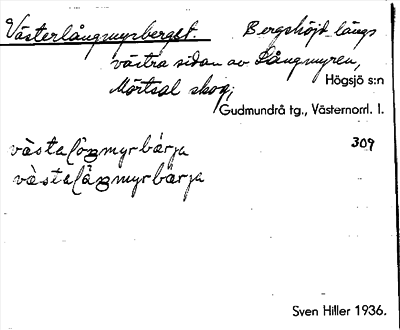 Västerlångmyrberget. Bergshöjd längs
västra sidan av Långmyren,
Mörtsal skog; Högsjö s:n
Gudmundrå tg., Västernorrl. l.
309
Sven Hiller 1936.